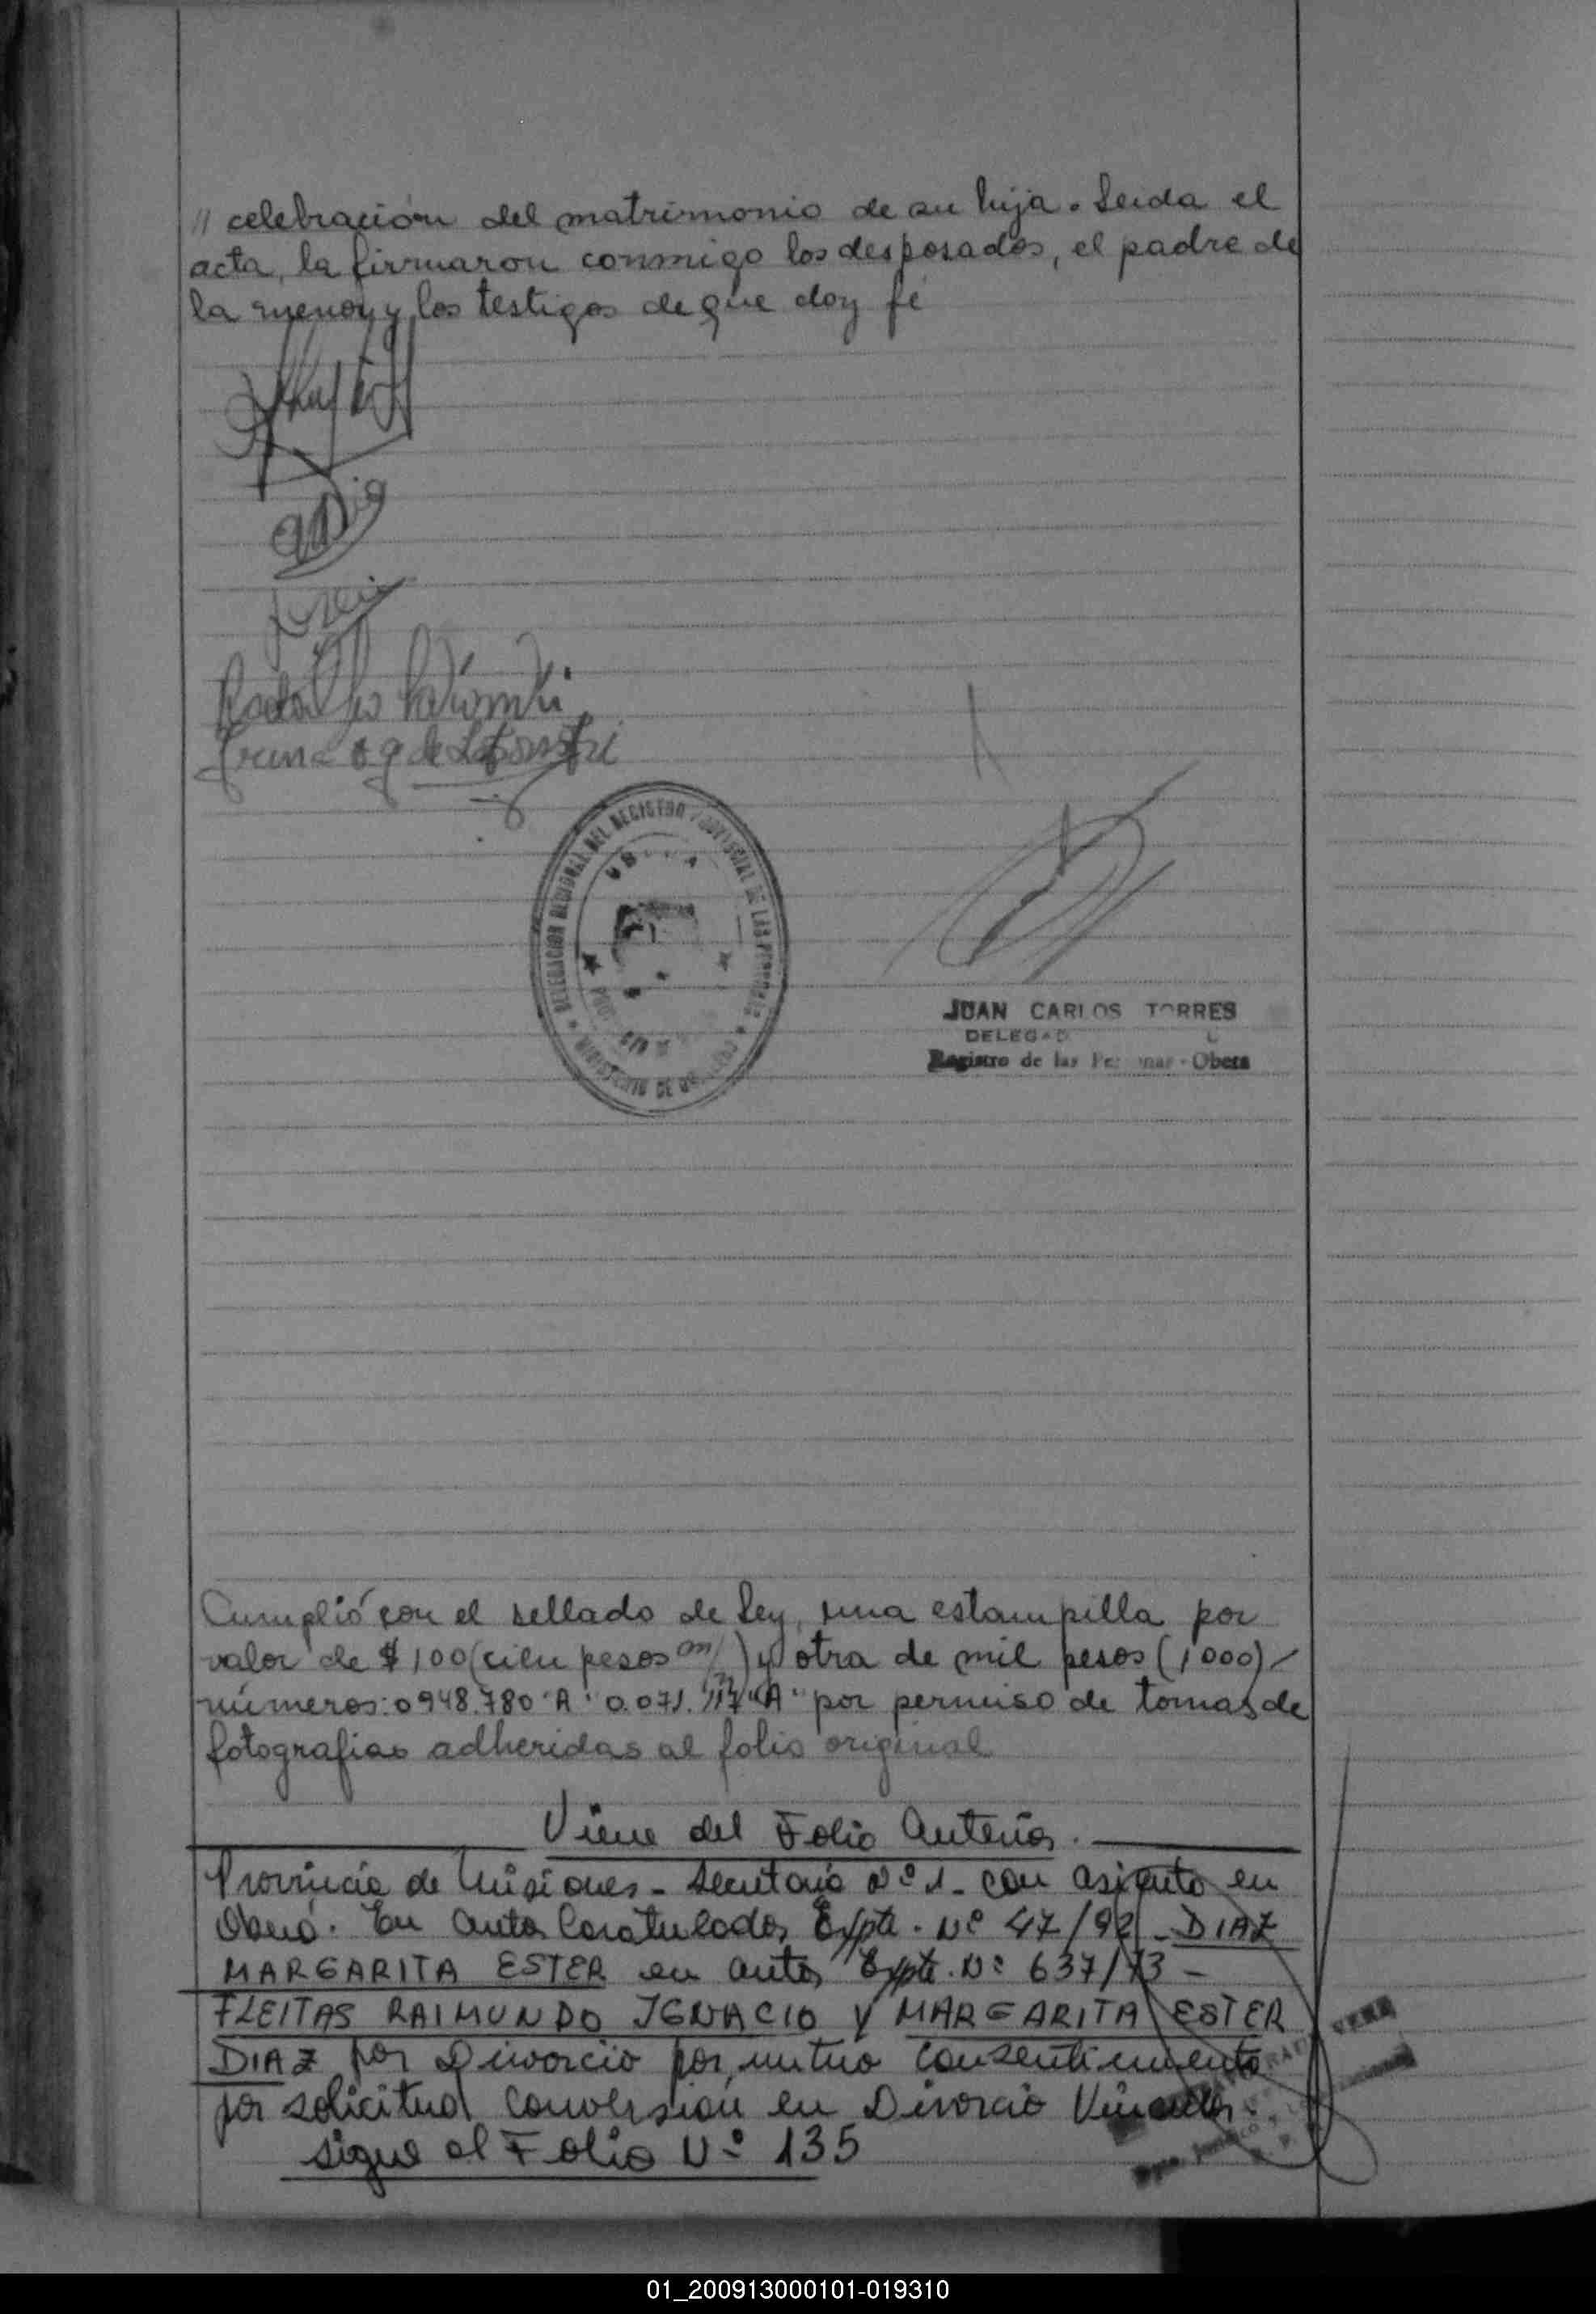 // celebración del matrimonio de su hija. Leida el
acta, la firmaron conmigo los desposados, el padre de
la menor y los testigos de que doy fé
DELEGACION REGIONAL DEL REGISTRO PROVINCIAL DE LAS PERSONAS
JUAN CARLOS TORRES
DELEGAD
Registro de las Personas - Obera
Cumplió con el sellado de Ley, una estampilla por
valor de $ 100 (cien pesos m/) y otra de mil pesos (1000)-
números: 0948.780 "A" 0.071. "A" por permiso de tomas de
fotografias adheridas al folio original
Viene del Folio Anterior.
Provincia de Misiones - Secretaria Nº 1 - con asiento en
Oberá. En autos Caratulados Expte. Nº 47/92 - DIAZ
MARGARITA ESTER en autos Expte. Nº 637/73 -
FLEITAS RAIMUNDO IGNACIO Y MARGARITA ESTER
DIAZ por Divorcio por mutuo Consentimiento
por solicitud conversión en Divorcio Vincular.
sigue al Folio Nº 135
01_200913000101-019310